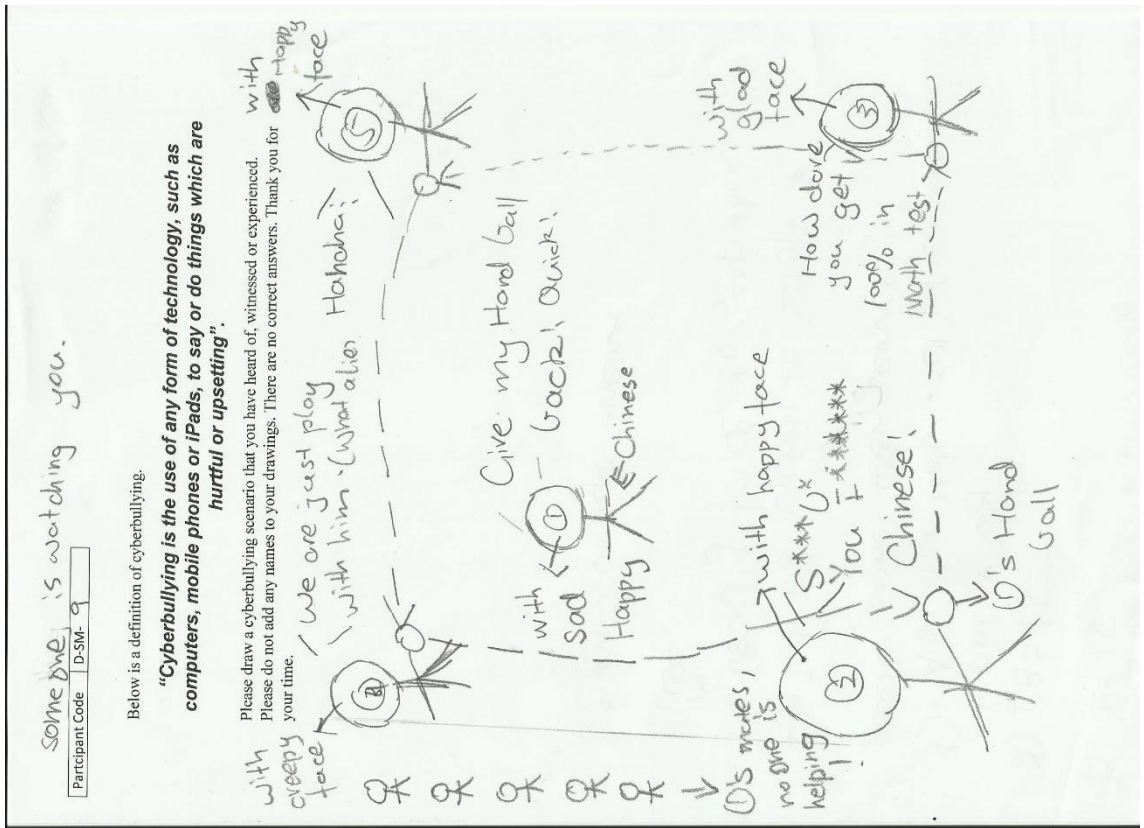 someone is watching you.
Partcipant Code D-SM- 9
Below is a definition of cyberbullying.
"Cyberbullying is the use of any form of technology, such as
computers, mobile phones or iPads, to say or do things which are
hurtful or upsetting".
Please draw a cyberbullying scenario that you have heard of, witnessed or experienced.
Please do not add any names to your drawings. There are no correct answers. Thank you for
your time.
with
creepy
face
we are just play
with him. (What alien
Hahaha!
5
with
Happy
face
Give my Hand ball
back! Quick!
1
with
sad
Happy
Chinese
①'s mates,
no one is
helping
!
with happy face
2
S***U*
You F******
Chinese!
①'s Hand
ball
with
glad
face
3
How dare
you get
100% in
Math test